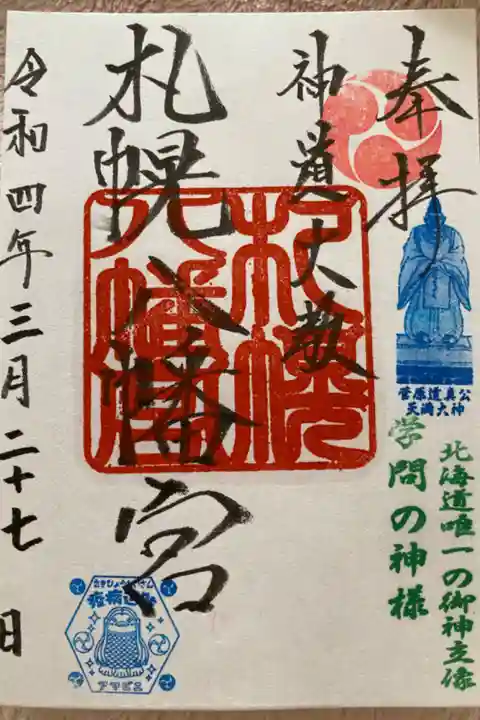 奉拝
神道大教
札幌八幡宮
令和四年三月二十七日
菅原道真公
天満大神
学問の神様
北海道唯一の御神立像
アマビエ